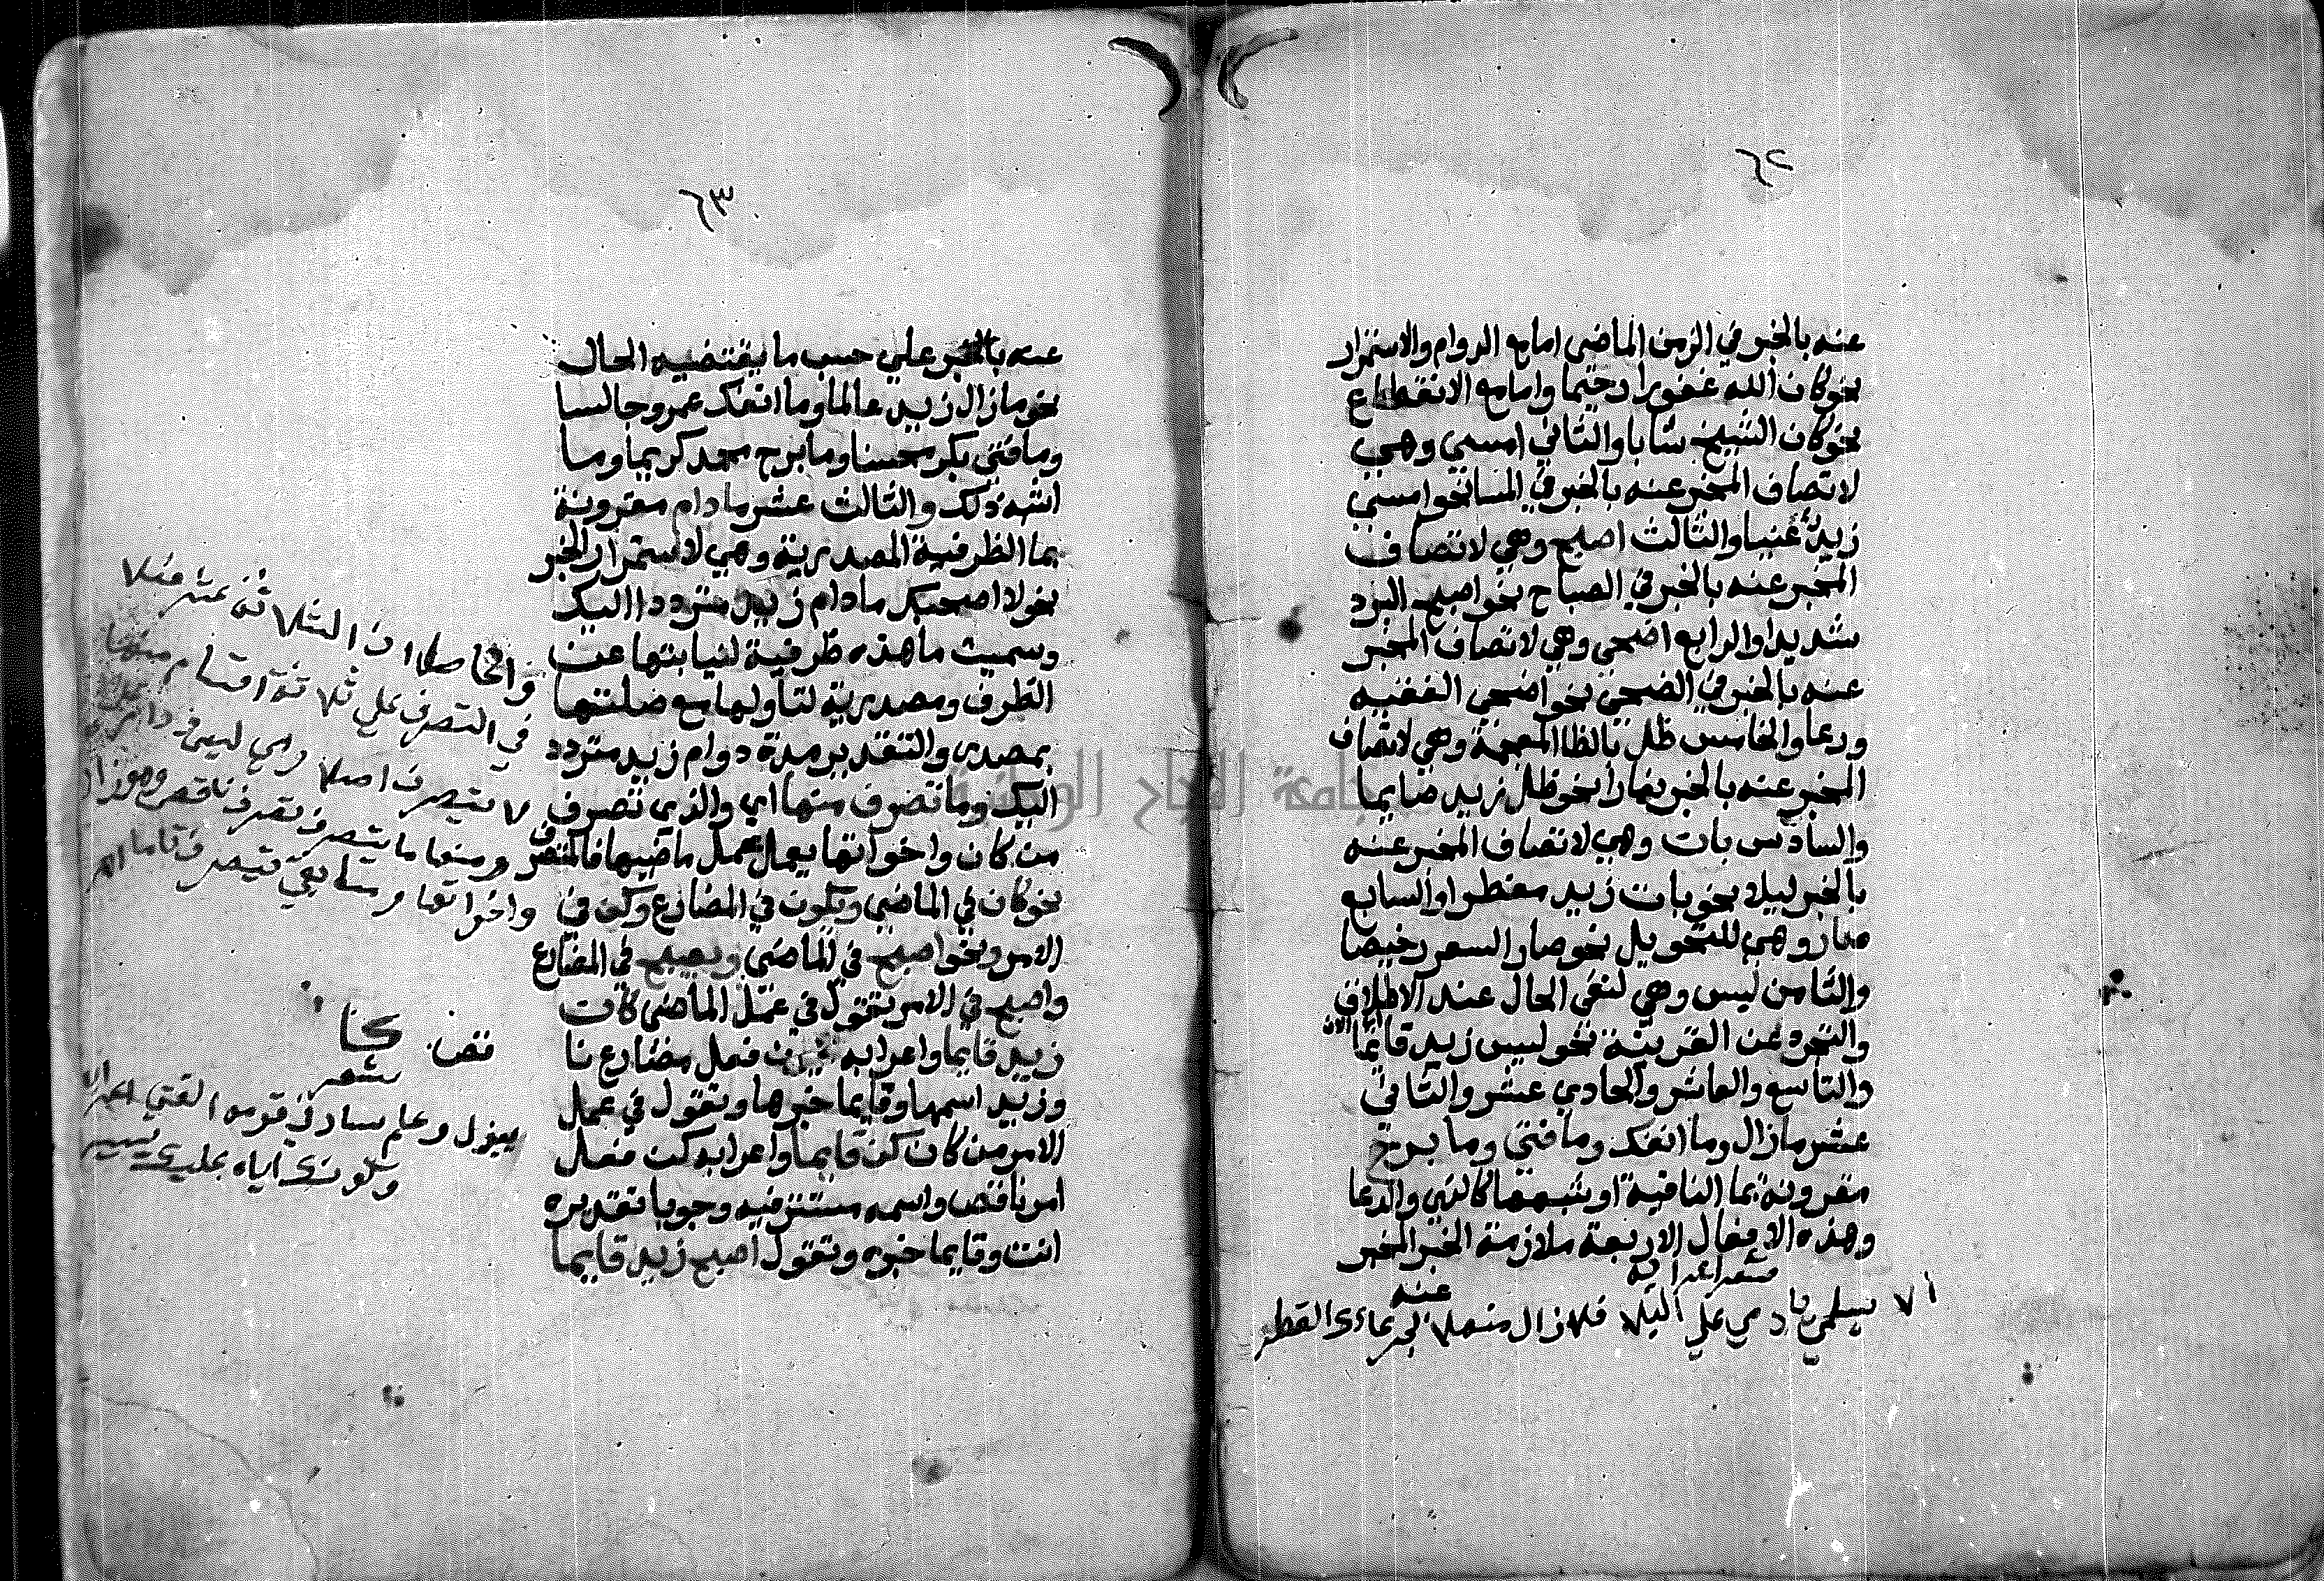 ٦٢
عنه بالخبر في الزمن الماضي اما مع الدوام والاستمرار
نحو كان الله غفورا رحيما واما مع الانقطاع
نحو كان الشيخ شابا والثاني امسي وهي
لاتصاف المخبر عنه بالخبر في المسا نحو امسي
زيد غنيا والثالث اصبح وهي لاتصاف
المخبر عنه بالخبر في الصباح نحو اصبح البرد
شديدا والرابع اضحي وهي لاتصاف المخبر
عنه بالخبر في الضحي نحو اضحي الفقيه
ورعا والخامس ظل بالظا المعجمة وهي لاتصاف
المخبر عنه بالخبر نهارا نحو ظل زيد صايما
والسادس بات وهي لاتصاف المخبر عنه
بالخبر ليلا نحو بات زيد مفطرا والسابع
صار وهي للتحويل نحو صار السعر رخيصا
والثامن ليس وهي لنفي الحال عند الاطلاق
والتجرد عن القرينة نحو ليس زيد قايما
اي الان
والتاسع والعاشر والحادي عشر والثاني
عشر مازال وما انفك وما فتي وما برح
مقرونة بما النافية او شبهها كالنهي والدعا
وهذه الافعال الاربعة ملازمة الخبر المخبر
عنه
الا يسلمي يا دمي علي البلا فلا زال منهلا بجرعائك القطر
٦٣
عنه بالخبر علي حسب ما يقتضيه الحال
نحو مازال زيد عالما وما انفك عمرو جالسا
وما فتي بكر محسنا وما برح محمد كريما وما
اشبه ذلك والثالث عشر مادام مقرونة
بما الظرفية المصدرية وهي لاستمرار الخبر
نحو لا اصحبك مادام زيد مترددا اليك
وسميت ما هذه ظرفية لنيابتها عن
الظرف ومصدرية لتأولها مع صلتها
بمصدر والتقدير مدة دوام زيد متردد
اليك وما تصرف منها اي والذي تصرف
من كان واخواتها يعمل عمل ماضيها فالمتصرف
نحو كان في الماضي ويكون في المضارع وكن في
الامر ونحو اصبح في الماضي ويصبح في المضارع
واصبح في الامر تقول في عمل الماضي كان
زيد قايما واعرابه فعل مضارع نا
وزيد اسمها وقايما خبرها وتقول في عمل
الامر من كان كن قايما واعرابه كن فعل
امر ناقص واسمه مستتر فيه وجوبا تقديره
انت وقايما خبره وتقول اصبح زيد قايما
والحاصل ان الثلاثة عشر فعلا
في التصرف علي ثلاثة اقسام منها
لا يتصرف اصلا وهي ليس
ومنها ما يتصرف تصرف ناقص وهو زال
واخواتها وما بقي يتصرف تاما
شعر
ببذل وحلم ساد في قومه الفتي
وكونك اياه عليك يسير
جامعة النجاح الوطنية